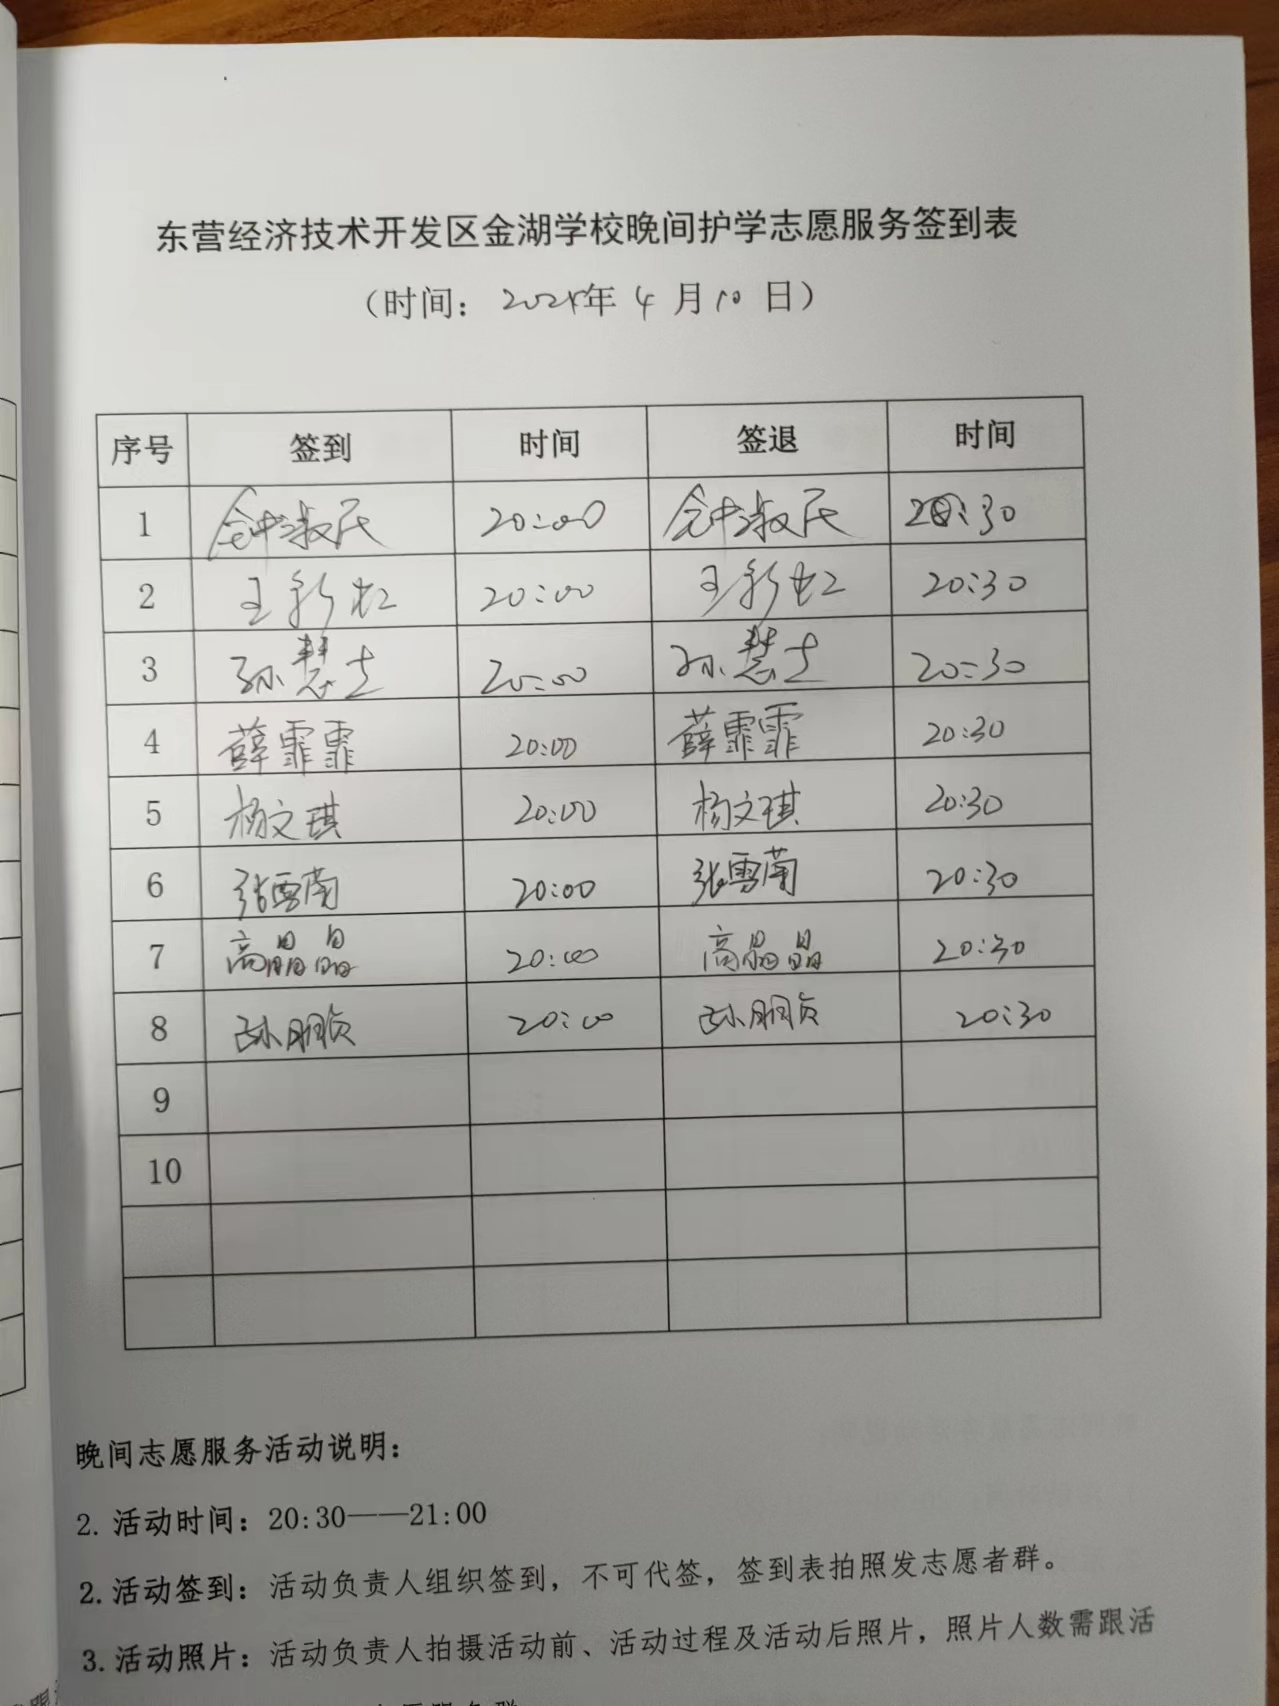 东营经济技术开发区金湖学校晚间护学志愿服务签到表
（时间：2025年 4 月 10 日）
序号 签到 时间 签退 时间
1 钟淑民 20:00 钟淑民 20:30
2 王彩虹 20:00 王彩虹 20:30
3 孙慧志 20:00 孙慧志 20:30
4 薛霏霏 20:00 薛霏霏 20:30
5 杨文琪 20:00 杨文琪 20:30
6 张雪菊 20:00 张雪菊 20:30
7 高晶晶 20:00 高晶晶 20:30
8 孙朋贞 20:00 孙朋贞 20:30
9
10
晚间志愿服务活动说明：
2. 活动时间：20:30——21:00
2. 活动签到：活动负责人组织签到，不可代签，签到表拍照发志愿者群。
3. 活动照片：活动负责人拍摄活动前、活动过程及活动后照片，照片人数需跟活